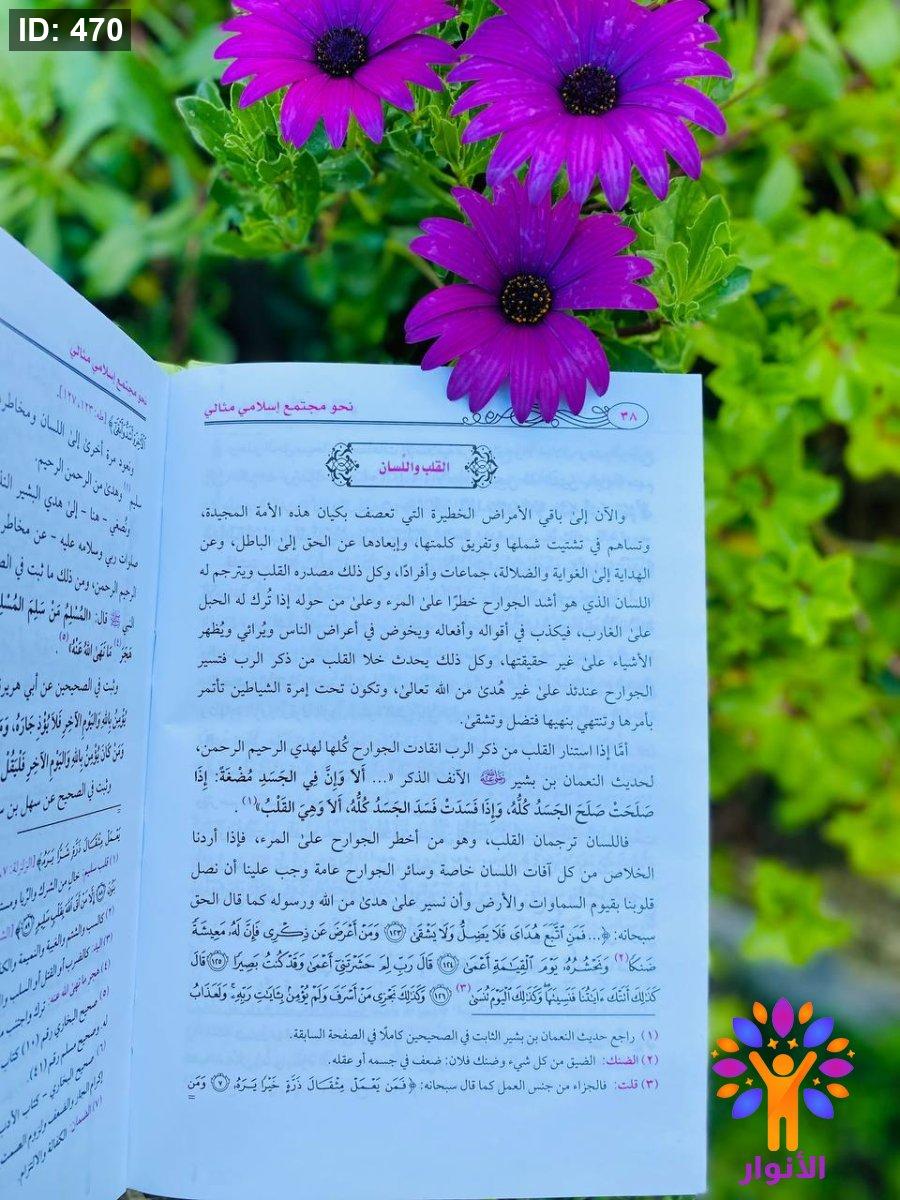 ID: 470
٣٨
نحو مجتمع إسلامي مثالي
القلب واللسان
والآن إلىٰ باقي الأمراض الخطيرة التي تعصف بكيان هذه الأمة المجيدة،
وتساهم في تشتيت شملها وتفريق كلمتها، وإبعادها عن الحق إلىٰ الباطل، وعن
الهداية إلىٰ الغواية والضلالة، جماعات وأفرادًا، وكل ذلك مصدره القلب ويترجم له
اللسان الذي هو أشد الجوارح خطرًا علىٰ المرء وعلىٰ من حوله إذا تُرك له الحبل
علىٰ الغارب، فيكذب في أقواله وأفعاله ويخوض في أعراض الناس ويُرائي ويُظهر
الأشياء علىٰ غير حقيقتها، وكل ذلك يحدث خلا القلب من ذكر الرب فتسير
الجوارح عندئذ علىٰ غير هُدىٰ من الله تعالىٰ، وتكون تحت إمرة الشياطين تأتمر
بأمرها وتنتهي بنهيها فتضل وتشقىٰ.
أمَّا إذا استنار القلب من ذكر الرب انقادت الجوارح كُلها لهدي الرحيم الرحمن،
لحديث النعمان بن بشير ﵁ الآنف الذكر «... ألا وَإِنَّ فِي الجَسَدِ مُضْغَةً: إِذَا
صَلَحَتْ صَلَحَ الجَسَدُ كُلُّهُ، وَإِذَا فَسَدَتْ فَسَدَ الجَسَدُ كُلُّهُ، أَلا وَهِيَ القَلْبُ»(١).
فاللسان ترجمان القلب، وهو من أخطر الجوارح علىٰ المرء، فإذا أردنا
الخلاص من كل آفات اللسان خاصة وسائر الجوارح عامة وجب علينا أن نصل
قلوبنا بقيوم السماوات والأرض وأن نسير علىٰ هدىٰ من الله ورسوله كما قال الحق
سبحانه: ﴿...فَمَنِ ٱتَّبَعَ هُدَايَ فَلَا يَضِلُّ وَلَا يَشْقَىٰ ١٢٣ وَمَنْ أَعْرَضَ عَن ذِكْرِى فَإِنَّ لَهُۥ مَعِيشَةً
ضَنكًا(٢) وَنَحْشُرُهُۥ يَوْمَ ٱلْقِيَـٰمَةِ أَعْمَىٰ ١٢٤ قَالَ رَبِّ لِمَ حَشَرْتَنِىٓ أَعْمَىٰ وَقَدْ كُنتُ بَصِيرًا ١٢٥ قَالَ
كَذَٰلِكَ أَتَتْكَ ءَايَـٰتُنَا فَنَسِيتَهَا وَكَذَٰلِكَ ٱلْيَوْمَ تُنسَىٰ(٣) ١٢٦ وَكَذَٰلِكَ نَجْزِى مَنْ أَسْرَفَ وَلَمْ يُؤْمِنۢ بِـَٔايَـٰتِ رَبِّهِۦ وَلَعَذَابُ
(١) راجع حديث النعمان بن بشير الثابت في الصحيحين كاملًا في الصفحة السابقة.
(٢) الضنك: الضيق من كل شيء وضنك فلان: ضعف في جسمه أو عقله.
(٣) قلت: فالجزاء من جنس العمل كما قال سبحانه: ﴿فَمَن يَعْمَلْ مِثْقَالَ ذَرَّةٍ خَيْرًا يَرَهُۥ ٧ وَمَن
نحو مجتمع إسلامي مثالي
[طه: ١٢٣، ١٢٧].
ونعود مرة أخرىٰ إلىٰ اللسان ومخاطر
سليم(١) وهدىٰ من الرحمن الرحيم.
ونُصغي - هنا - إلىٰ هدي البشير
صلوات ربي وسلامه عليه - عن مخاطر
الرحيم الرحمن، ومن ذلك ما ثبت في
النبي ﷺ قال: «المُسْلِمُ مَنْ سَلِمَ
هَجَرَ(٤) مَا نَهَىٰ اللهُ عَنْهُ»(٥).
وثبت في الصحيحين عن أبي هريرة
يُؤْمِنُ بِاللهِ وَاليَوْمِ الآخِرِ فَلَا يُؤْذِ جَارَهُ،
وَمَنْ كَانَ يُؤْمِنُ بِاللهِ وَاليَوْمِ الآخِرِ فَلْيَقُلْ
وثبت في الصحيح عن سهل بن
يَعْمَلْ مِثْقَالَ ذَرَّةٍ شَرًّا يَرَهُۥ﴾
(١) قلب سليم: خالٍ من الشرك والرِّيا
(٢) كالسب والشتم والغيبة والنميمة
(٣) اليد: كالضرب أو القتل أو السلب
(٤) هجر ما نهىٰ الله عنه: ترك واجتنب
(٥) صحيح البخاري رقم (١٠) كتاب
له. وصحيح مسلم رقم (٤١).
(٦) صحيح البخاري - كتاب الأدب
إكرام الجار والضيف ولزوم الصمت
(٧) الضمان: الكفالة والالتزام.
الأنوار